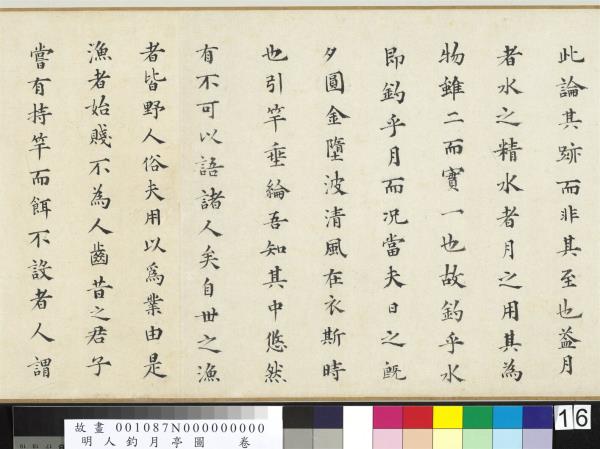 此論其跡而非其至也蓋月
者水之精水者月之用其為
物雖二而實一也故釣乎水
即釣乎月而况當夫日之既
夕圓金墮波清風在衣斯時
也引竿垂綸吾知其中悠然
有不可以語諸人矣自世之漁
者皆野人俗夫用以為業由是
漁者始賤不為人齒昔之君子
嘗有持竿而餌不設者人謂
故畫 001087N000000000
明人釣月亭圖 卷
16